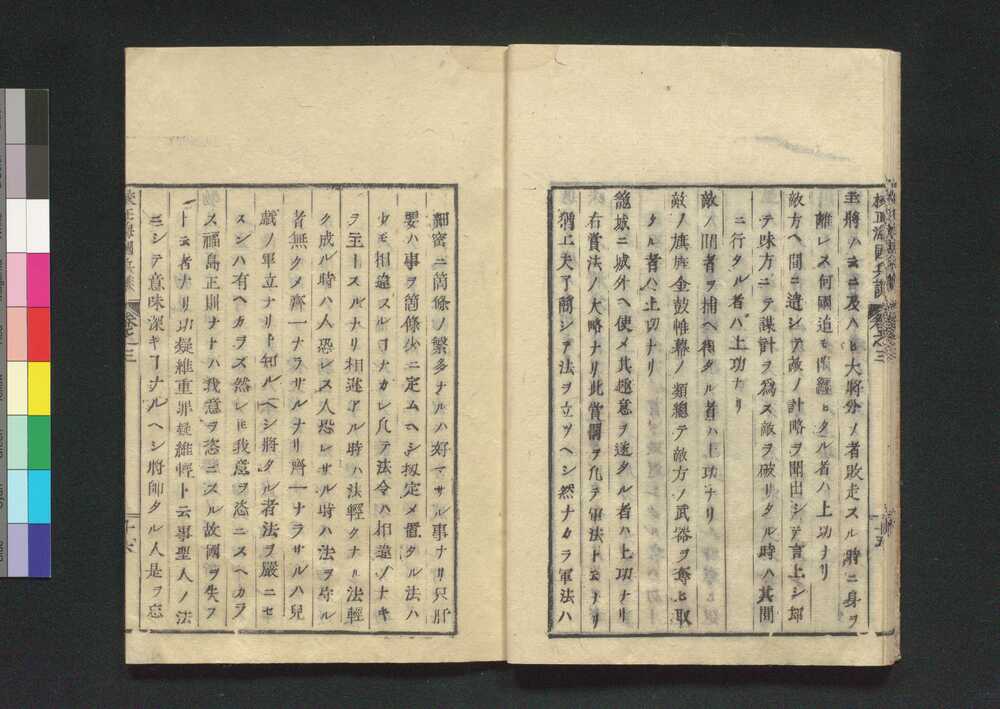 主將ハ云ニ及ハヒ大將分ノ者敗走スル時ニ身ヲ
離レス何國迠モ附經ヒタル者ハ上功ナリ
敵方ヘ間ニ遣シテ敵ノ計略ヲ聞出シテ言上シ却
テ味方ニテ謀計ヲ爲ス敵ヲ破リタル時ハ其間
ニ行タル者ハ上功ナリ
敵ノ間者ヲ捕ヘ得タル者ハ上功ナリ
敵ノ旗旌金鼓帷幕ノ類總テ敵方ノ武器ヲ奪ヒ取
タル者ハ上功ナリ
籠城ニ城外ヘ使メ其趣意ヲ遂タル者ハ上功ナリ
右賞法ノ大略ナリ此賞罰ヲ凢テ軍法ト云ナリ
猶工夫了簡シテ法ヲ立ツヘシ然ナカラ軍法ハ
十五
細密ニ箇條ノ繁多ナルハ好マサル事ナリ只肝
要ハ事ヲ箇條少ニ定ムヘシ扨定メ置タル法ハ
少モ相違スルヿナカレ凢テ法令ハ相違ノナキ
ヲ主トスルナリ相違アル時ハ法輕クナル法輕
ク成ル時ハ人恐レス人恐レサル時ハ法ヲ弄ル
者無クメ齊一ナラサルナリ齊一ナラサルハ兒
戯ノ軍立ナリト知ルヘシ將タル者法ヲ嚴ニセ
スンハ有ヘカラス然レ𪜈我意ヲ恣ニスヘカラ
ス福島正則ナトハ我意ヲ恣ニスル故國ヲ失フ
ト云者ナリ功疑維重罪疑維輕ト云事聖人ノ法
ニシテ意味深キヿナルヘシ將帥タル人是ヲ忘
卷之三
十六